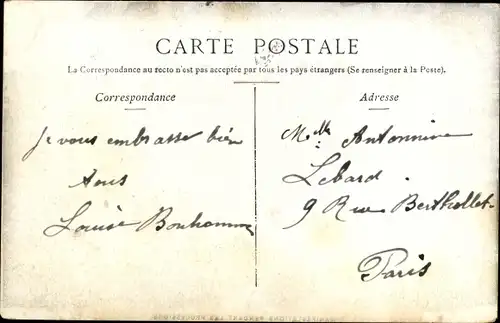 CARTE POSTALE
La Correspondance au recto n'est pas acceptée par tous les pays étrangers (Se renseigner à la Poste).
Correspondance
Je vous embrasse bien
tous
Louise Bonhomme
Adresse
Mlle Antonnine
Lebard.
9 Rue Berthollet.
Paris